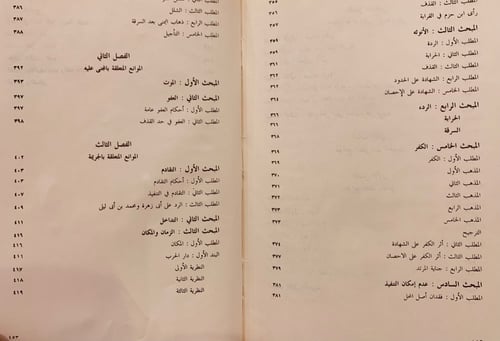 المطلب الثالث : القذف ٣٥٥
رأى ابن حزم في القرابة ٣٥٦
المبحث الثالث : الأنوثه ٣٥٧
المطلب الأول : الردة
المطلب الثاني : الحرابة
المطلب الثالث : القذف
المطلب الرابع : الشهادة على الحدود
المطلب الخامس : الشهادة على الإحصان
المبحث الرابع : الرده
الحرابة
السرقة ٣٦٨
المبحث الخامس : الكفر ٣٦٩
المطلب الأول : الكفر ٣٦٩
المذهب الأول ٣٧٠
المذهب الثاني ٣٧١
المذهب الثالث ٣٧٢
المذهب الرابع ٣٧٢
المذهب الخامس ٣٧٣
الترجيح
المطلب الثاني : أثر الكفر على الشهادة ٣٧٤
المطلب الثالث : أثر الكفر على الاحصان ٣٧٧
المطلب الرابع : جناية المرتد ٣٧٩
المبحث السادس : عدم إمكان التنفيذ ٣٨١
المطلب الأول : فقدان أصل المحل ٣٨١
المطلب الثالث : الشلل ٣٨٦
المطلب الرابع : ذهاب اليمنى بعد السرقة ٣٨٧
المطلب الخامس : التأجيل ٣٨٨
الفصل الثاني
الموانع المتعلقة بالمجنى عليه ٣٩٢
المبحث الأول : الموت ٣٩٣
المبحث الثاني : العفو ٣٩٧
المطلب الأول : أحكام العفو عامة ٣٩٧
المطلب الثاني : العفو في حد القذف ٣٩٨
الفصل الثالث
الموانع المتعلقة بالجريمة ٤٠٢
المبحث الأول : التقادم ٤٠٣
المطلب الأول : أحكام التقادم ٤٠٣
المطلب الثاني : التقادم في التنفيذ ٤٠٧
المطلب الثالث : الرد على أبى زهرة ومحمد بن أبى ليلى ٤٠٩
المبحث الثاني : التداخل ٤١١
المبحث الثالث : الزمان والمكان ٤١٦
المطلب الأول : المكان ٤١٦
البند الأول : دار الحرب ٤١١
النظرية الأولى ٤١٧
النظرية الثانية ٤١٨
النظرية الثالثة ٤١٩
٤٥٣